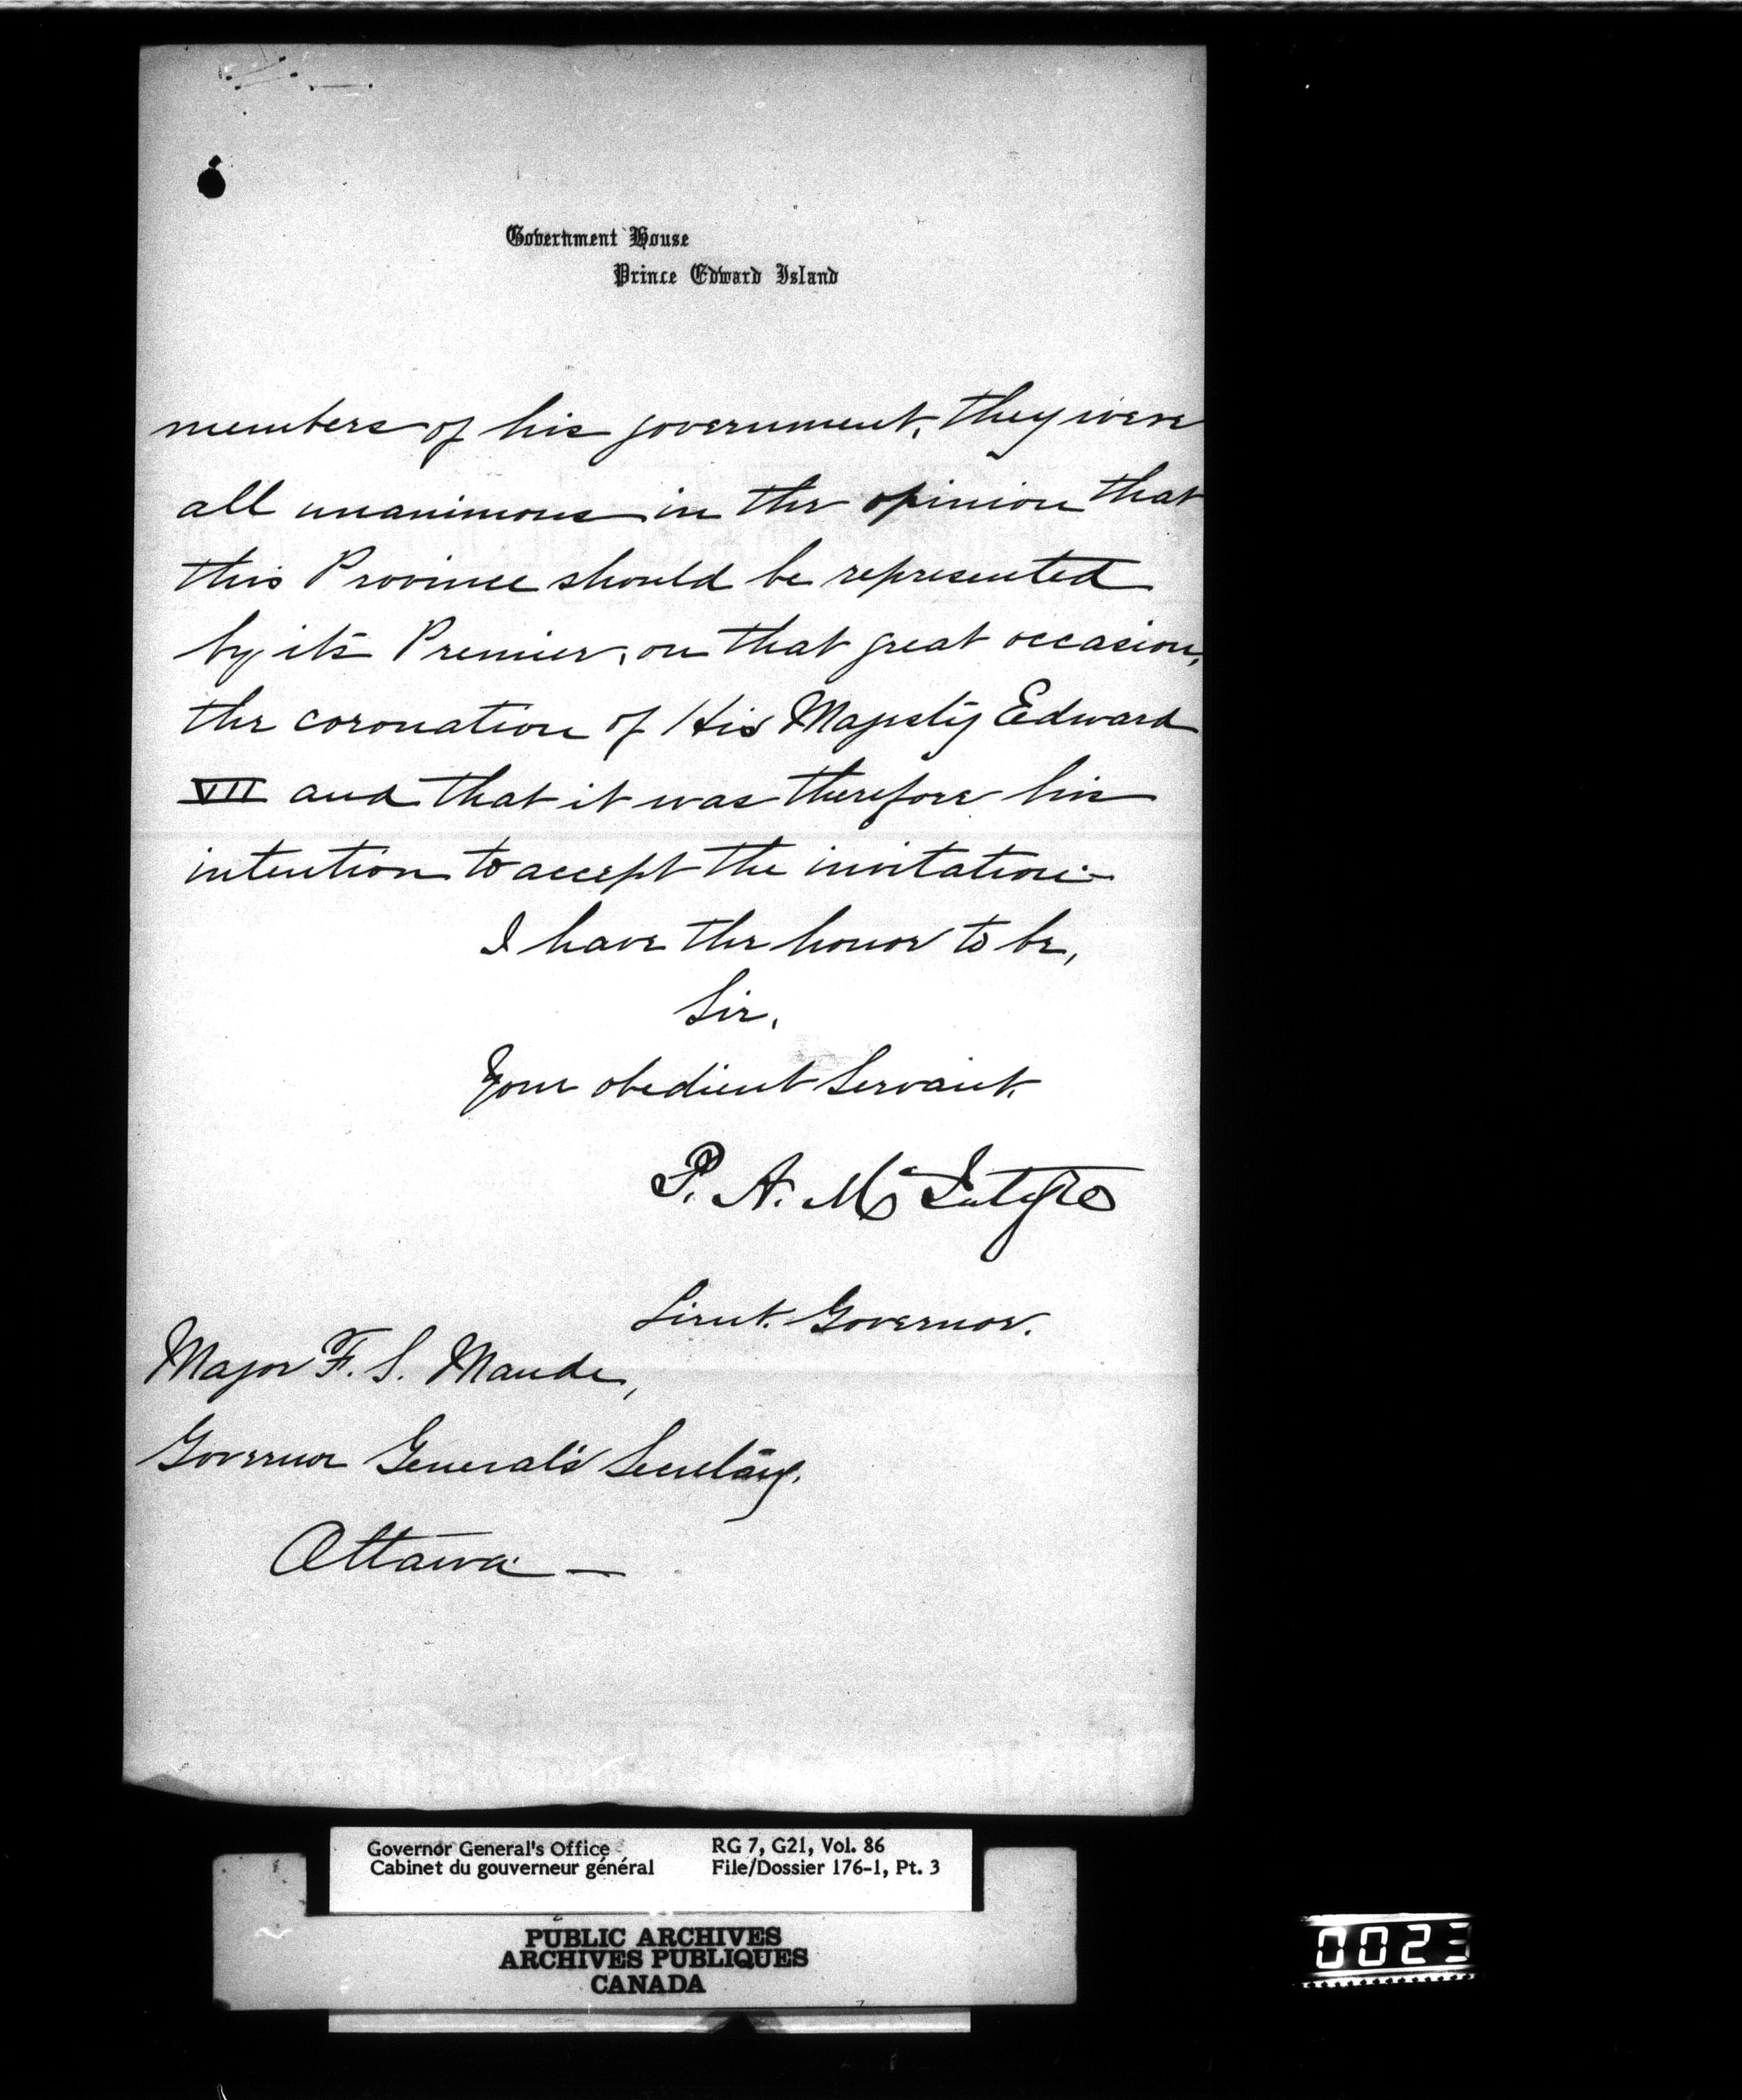 Government House
Prince Edward Island
members of his government, they were
all unanimous in the opinion that
this Province should be represented
by its Premier, on that great occasion,
the coronation of His Majesty Edward
VII and that it was therefore his
intention to accept the invitation.
I have the honor to be,
Sir,
Your obedient Servant.
P. A. McIntyre
Lieut. Governor.
Major F. S. Maude,
Governor General's Secretary.
Ottawa —
Governor General's Office
Cabinet du gouverneur général
RG 7, G21, Vol. 86
File/Dossier 176-1, Pt. 3
PUBLIC ARCHIVES
ARCHIVES PUBLIQUES
CANADA
0023